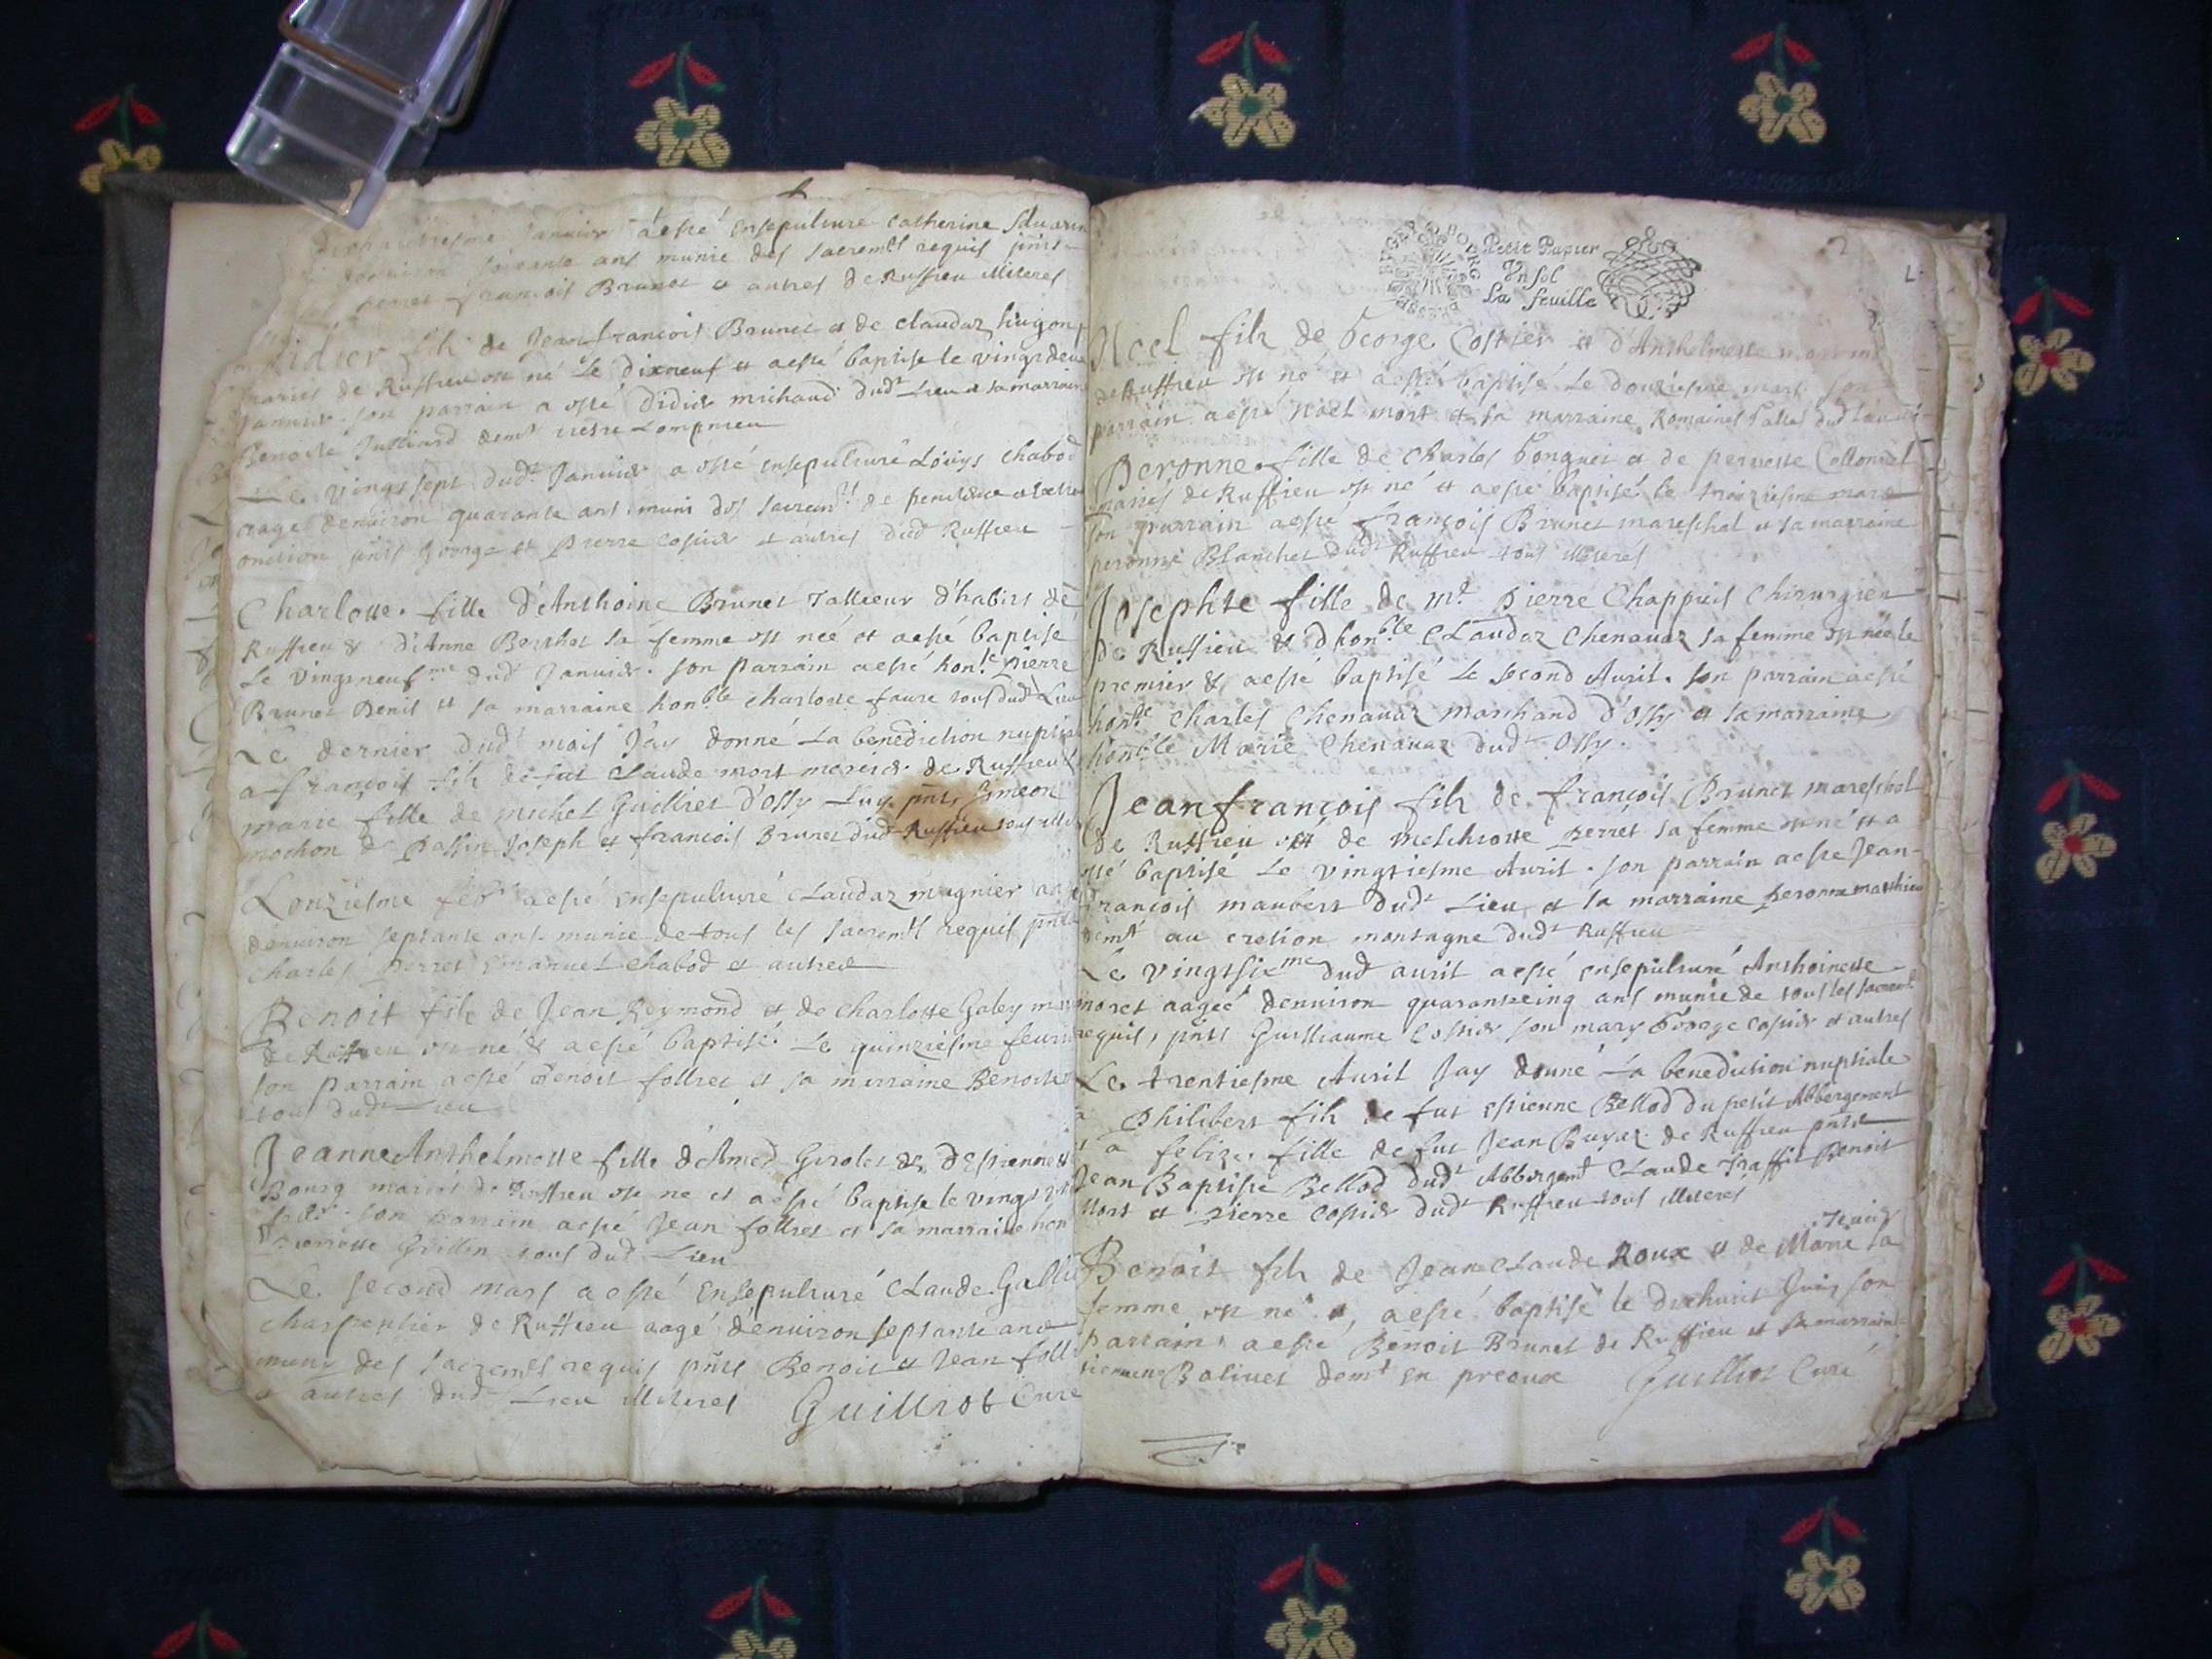 Januier a esté ensepulturé Catherine
soixante ans munie des sacremts requis pnts
perret francois Brunet et autres de Ruffieu illiteres
Didier fils de Jean francois Brunet et de claudaz hugon
mariés de Ruffieu est né le dixneuf et a esté baptisé le vingtdeux
Januier. son parrain a esté Didier michaud dudt Lieu et sa marraine
Benoite Julliard demt Lompnieu
Le vingt sept dudt Januier a esté ensepulturé Loüys chabod
aagé denuiron quarante ans muni des sacremts de penitence et extre
onction pnts George et pierre Costier et autres dudt Ruffieu
Charlotte. fille d'Anthoine Brunet Tallieur d'habits de
Ruffieu & d'Anne Berthet sa femme est née et a esté baptisé
Le vingtneufme dudt Januier. son parrain a esté honle pierre
Brunet Denis et sa marraine honble charlotte faure tous dudt Lieu
Le dernier dudt mois J'ay donné La benediction nuptial
a francois fils de fut Claude mort mercier de Ruffieu &
marie fille de michel Guilliet d'ossy Luy. pnts Simeon
mochon de Passin Joseph et francois Brunet dudt Ruffieu tous illit
Lonziesme feb a esté ensepulturé Claudaz mugnier aag
denuiron septante ans munie de tous les sacremts requis pnts
Charles perret Emanuel chabod et autres
Benoit fils de Jean Reymond et de charlotte Galey mar
de Ruffieu est né & a esté baptisé. Le quinziesme feuri
son parrain a esté Benoit follret et sa marraine Benoite
tous dudt Lieu
Jeanne Anthelmette fille d'Amed Girolet & d'Estiennett
Bourg mariés de Ruffieu est ne et a esté baptisé le vingt
son parrain a esté Jean follret et sa marraine hon
pierrette Grillin tous dudt Lieu
Le second mars a esté ensepulturé Claude Galli
charpentier de Ruffieu aagé denuiron septante ans
muny des sacremts requis pnts Benoit et Jean foll
et autres dudt Lieu illiteres Guilliot Curé
2
Petit Papier
Un sol
La feuille
Noel fils de George Costier et d'Anthelmette
de Ruffieu est né et a esté baptisé Le douziesme mars son
parrain a esté noel mort et sa marraine Romaine dudt Lieu
Peronne. fille de Charles Fonguet et de pernette Collomet
mariés de Ruffieu est né et a esté baptisé le treiziesme mars
Son parrain a esté françois Brunet mareschal et sa marraine
peronne Blanchet dudt Ruffieu tous illiteres
Josephte fille de mt Pierre Chappuis Chirurgien
De Ruffieu & d'honble Claudaz Chenauaz sa femme est née le
premier & a esté baptisé Le second Auril. son parrain a esté
honble charles Chenauaz marchand d'Ossy et sa marraine
honble Marie Chenauaz dudt Ossy.
Jean françois fils de françois Brunet mareschal
de Ruffieu et de Melchiotte perret sa femme est né et a
esté baptisé Le vingtiesme Auril. son parrain a esté Jean-
francois maubert dudt Lieu et la marraine peronne matthieu
demt au montagne dudt Ruffieu
Le vingtsixme dudt auril a esté ensepulturé Anthoinette
moret aageé denuiron quarantecinq ans munie de tous les sacremts
requis, pnts Guilliaume Costier son mary George Costier et autres
Le trentiesme Auril Jay donné La benediction nuptiale
a Philibert fils de fut estienne Bellod du petit Abbergement
& a felize fille de fut Jean Buyaz de Ruffieu pnts
Jean Baptiste Bellod dudt Abbergemt Claude Traffit Benoit
Mort et pierre Costier dudt Ruffieu tous illiteres
Benoit fils de Jean Claude Roux et de Marie Teuier sa
femme est né et a esté baptisé le dixhuit Guin son
parrain a esté Benoit Brunet de Ruffieu et sa marraine
Balivet demt en preoux Guilliot Curé